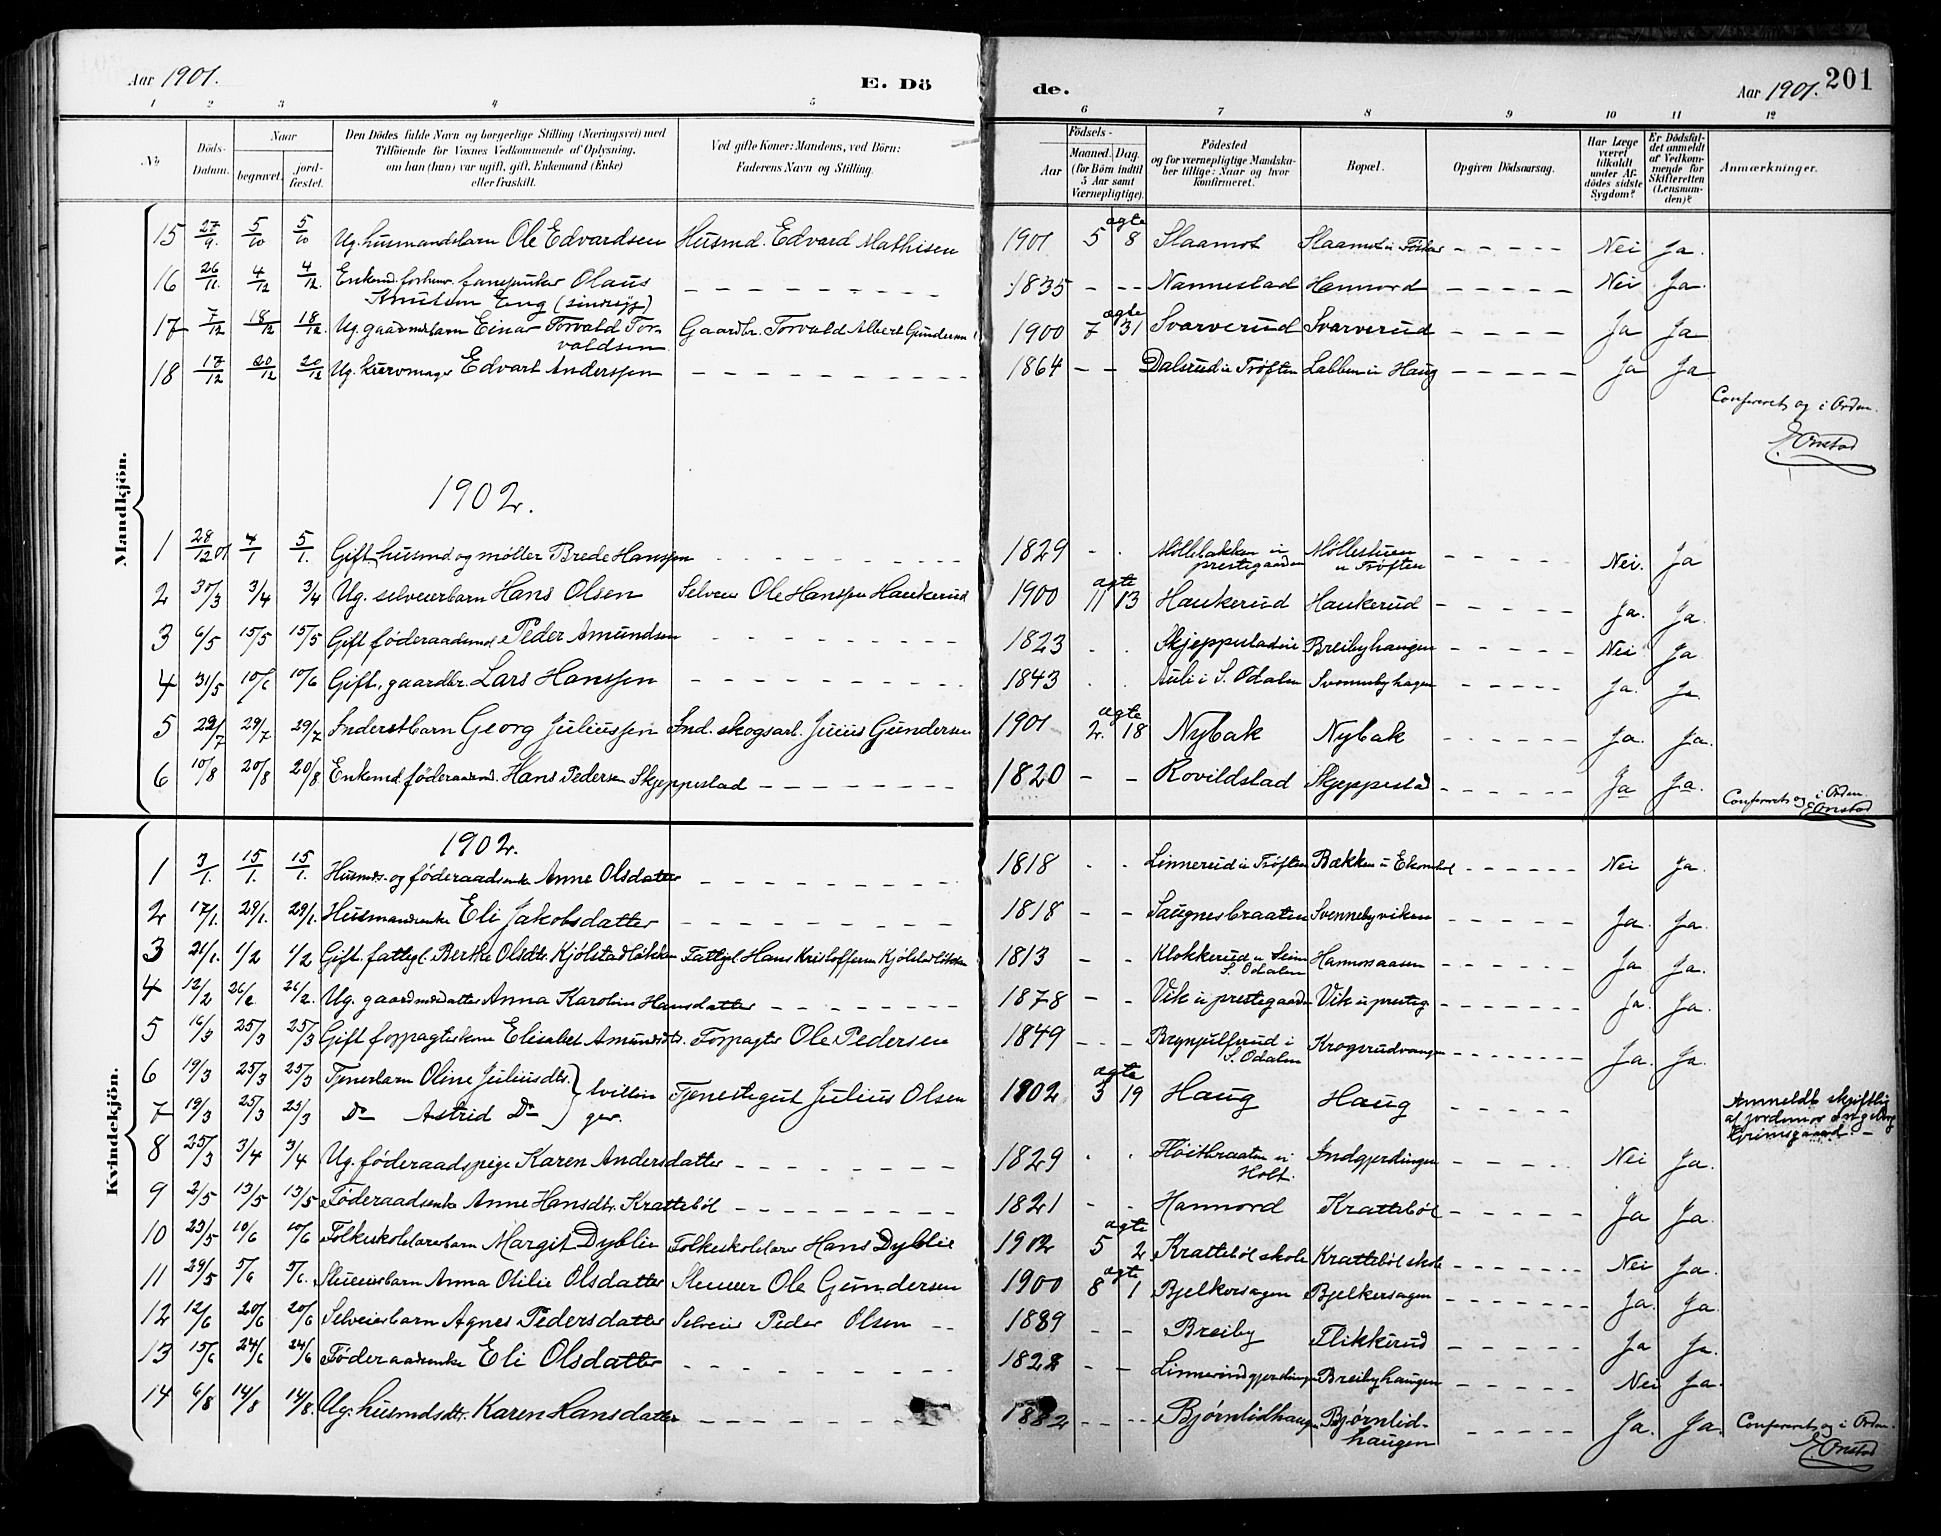 Aar 1901. E. Dö de. Aar 1901. 201
1 2 3 4 5 6 7 8 9 10 11 12
No Döds-Datum. Naar begravet. jord-fæstet. Den Dödes fulde Navn og borgerlige Stilling (Næringsvei) med Tilföiende for Voxnes Vedkommende af Oplysning, om han (hun) var ugift, gift, Enkemand (Enke) eller fraskilt. Ved gifte Koner: Mandens, ved Börn: Faderens Navn og Stilling. Födsels- Aar Maaned. Dag. (for Börn indtil 5 Aar samt Værnepligtige). Födested og for værnepligtige Mandskaber tillige: Naar og hvor konfirmeret. Bopæl. Opgiven Dödsaarsag. Har Læge været tilkaldt under Afdödes sidste Sygdom? Er Dödsfaldet anmeldt af Vedkommende for Skifteretten (Lensmanden)? Anmærkninger.
Mandkjön.
15 27/9. 5/10 5/10 Ug. husmandsbarn Ole Edvardsen Husmd. Edvard Mathisen 1901 5 8 ægte Slaamot Slaamot Nei Ja.
16 26/11. 4/12 4/12. Enkemd. forhenv. Olaus
Knutsen Eng (sindssyg) 1835 Nannestad Hannord Nei Ja.
17 7/12 18/12 18/12. Ug. gaardmdsbarn Einar Torvald Tor-
valdsen Gaardbr. Torvald Albert Gundersen 1900 7 31 ægte Svarverud Svarverud Ja Ja
18 17/12 20/12 20/12 Ug. Edvart Anderssen 1864 Dalsrud i Trøften Labben i Haug Ja Ja
Confereret og i Orden.
E. Onstad
1902.
1 28/12 01 4/1 5/1. Gift husmd og møller Brede Hanssen 1829 Møllebakken i
prestegaarden Møllestuen
i Trøften Nei. Ja
2 30/3 3/4 3/4 Ug. selveierbarn Hans Olsen Selveier Ole Hanssen Haukerud 1900 11 13 ægte Haukerud Haukerud Ja. Ja.
3 6/5 15/5 15/5 Gift føderaadsmd Peder Amundsen 1823 Skjeppestad Breibyhaugen Nei Ja
4 31/5 10/6 10/6 Gift. gaardbr. Lars Hanssen 1843 Auli i S. Odalen Svennebyhagen Ja. Ja
5 22/7 29/7 29/7 Inderstbarn Georg Juliussen Ind. skogsarb. Julius Gundersen 1901 2. 18 ægte Nybak Nybak Ja. Ja.
6 10/8 20/8 20/8 Enkemd. føderaadsmd. Hans Pedersen Skjeppestad 1820 Rovildstad Skjeppestad Ja Ja.
Confereret og i Orden.
E. Onstad
Kvindekjön.
1902.
1 3/1. 15/1. 15/1. Husmds. og føderaadsenke Anne Olsdatter 1818 Linnerud i Trøften Bakken i Ekornhol Nei Ja.
2 17/1. 29/1. 29/1. Husmandsenke Eli Jakobsdatter 1818 Saugnesbraaten Svennebyviken Ja. Ja.
3 21/1. 1/2 1/2 Gift. fattigl. Berthe Olsdtr Kjølstadløkken Fattigl Hans Kristoffersen Kjølstadløkken 1813 Klokkerud
S. Odalen Hannosaasen Ja Ja.
4 12/2 26/2 26/2. Ug. gaardmdsdatter Anna Karoline Hansdatter 1878 Vik i prestegaarden Vik i presteg. Ja. Ja.
5 16/3 25/3 25/3 Gift forpagterkone Elisabet Amundsdtr. Forpagter Ole Pedersen 1849 Brynjulfsrud i
S. Odalen Krogsrudvangen Ja. Ja.
6 19/3 25/3 25/3 Tjenerbarn Oline Juliusdtr. tvillin Tjenestegut Julius Olsen 1902 3 19 ægte Haug Haug
7 19/3 25/3 25/3 Do Astrid Do ger. Anmeldt skriftlig
af jordmor Ingeborg
Grimsgaard.
8 25/3 3/4 3/4 Ug. føderaadspige Karen Andersdatter 1829 Høitbraaten i
Holt. Indgjerdingen Nei Ja.
9 2/5 13/5 13/5 Føderaadsenke Anne Hansdtr. Krattebøl 1821 Hannord Krattebøl Ja Ja.
10 23/5 10/6 10/6 Folkeskolelærerbarn Margit Dyblie Folkeskolelærer Hans Dyblie 1902 5 2 ægte Krattebøl skole Krattebøl skole Nei Ja.
11 29/5 5/6 5/6. Slueierbarn Anna Otilie Olsdatter Slueier Ole Gundersen 1900 8 1 ægte Bjelkersagen Bjelkersagen Ja. Ja
12 12/6 20/6 20/6 Selveierbarn Agnes Pedersdatter Selveier Peder Olsen 1889 Breiby Flikkerud Ja Ja.
13 15/6 24/6 24/6 Føderaadsenke Eli Olsdatter 1828 Linnerudgjerdingen Breibyhaugen Nei Ja.
14 6/8 14/8 14/8. Ug. husmdsdtr. Karen Hansdatter 1882 Bjørnlidhaugen Bjørnlid-
haugen Ja. Ja.
Confereret og i Orden.
E. Onstad